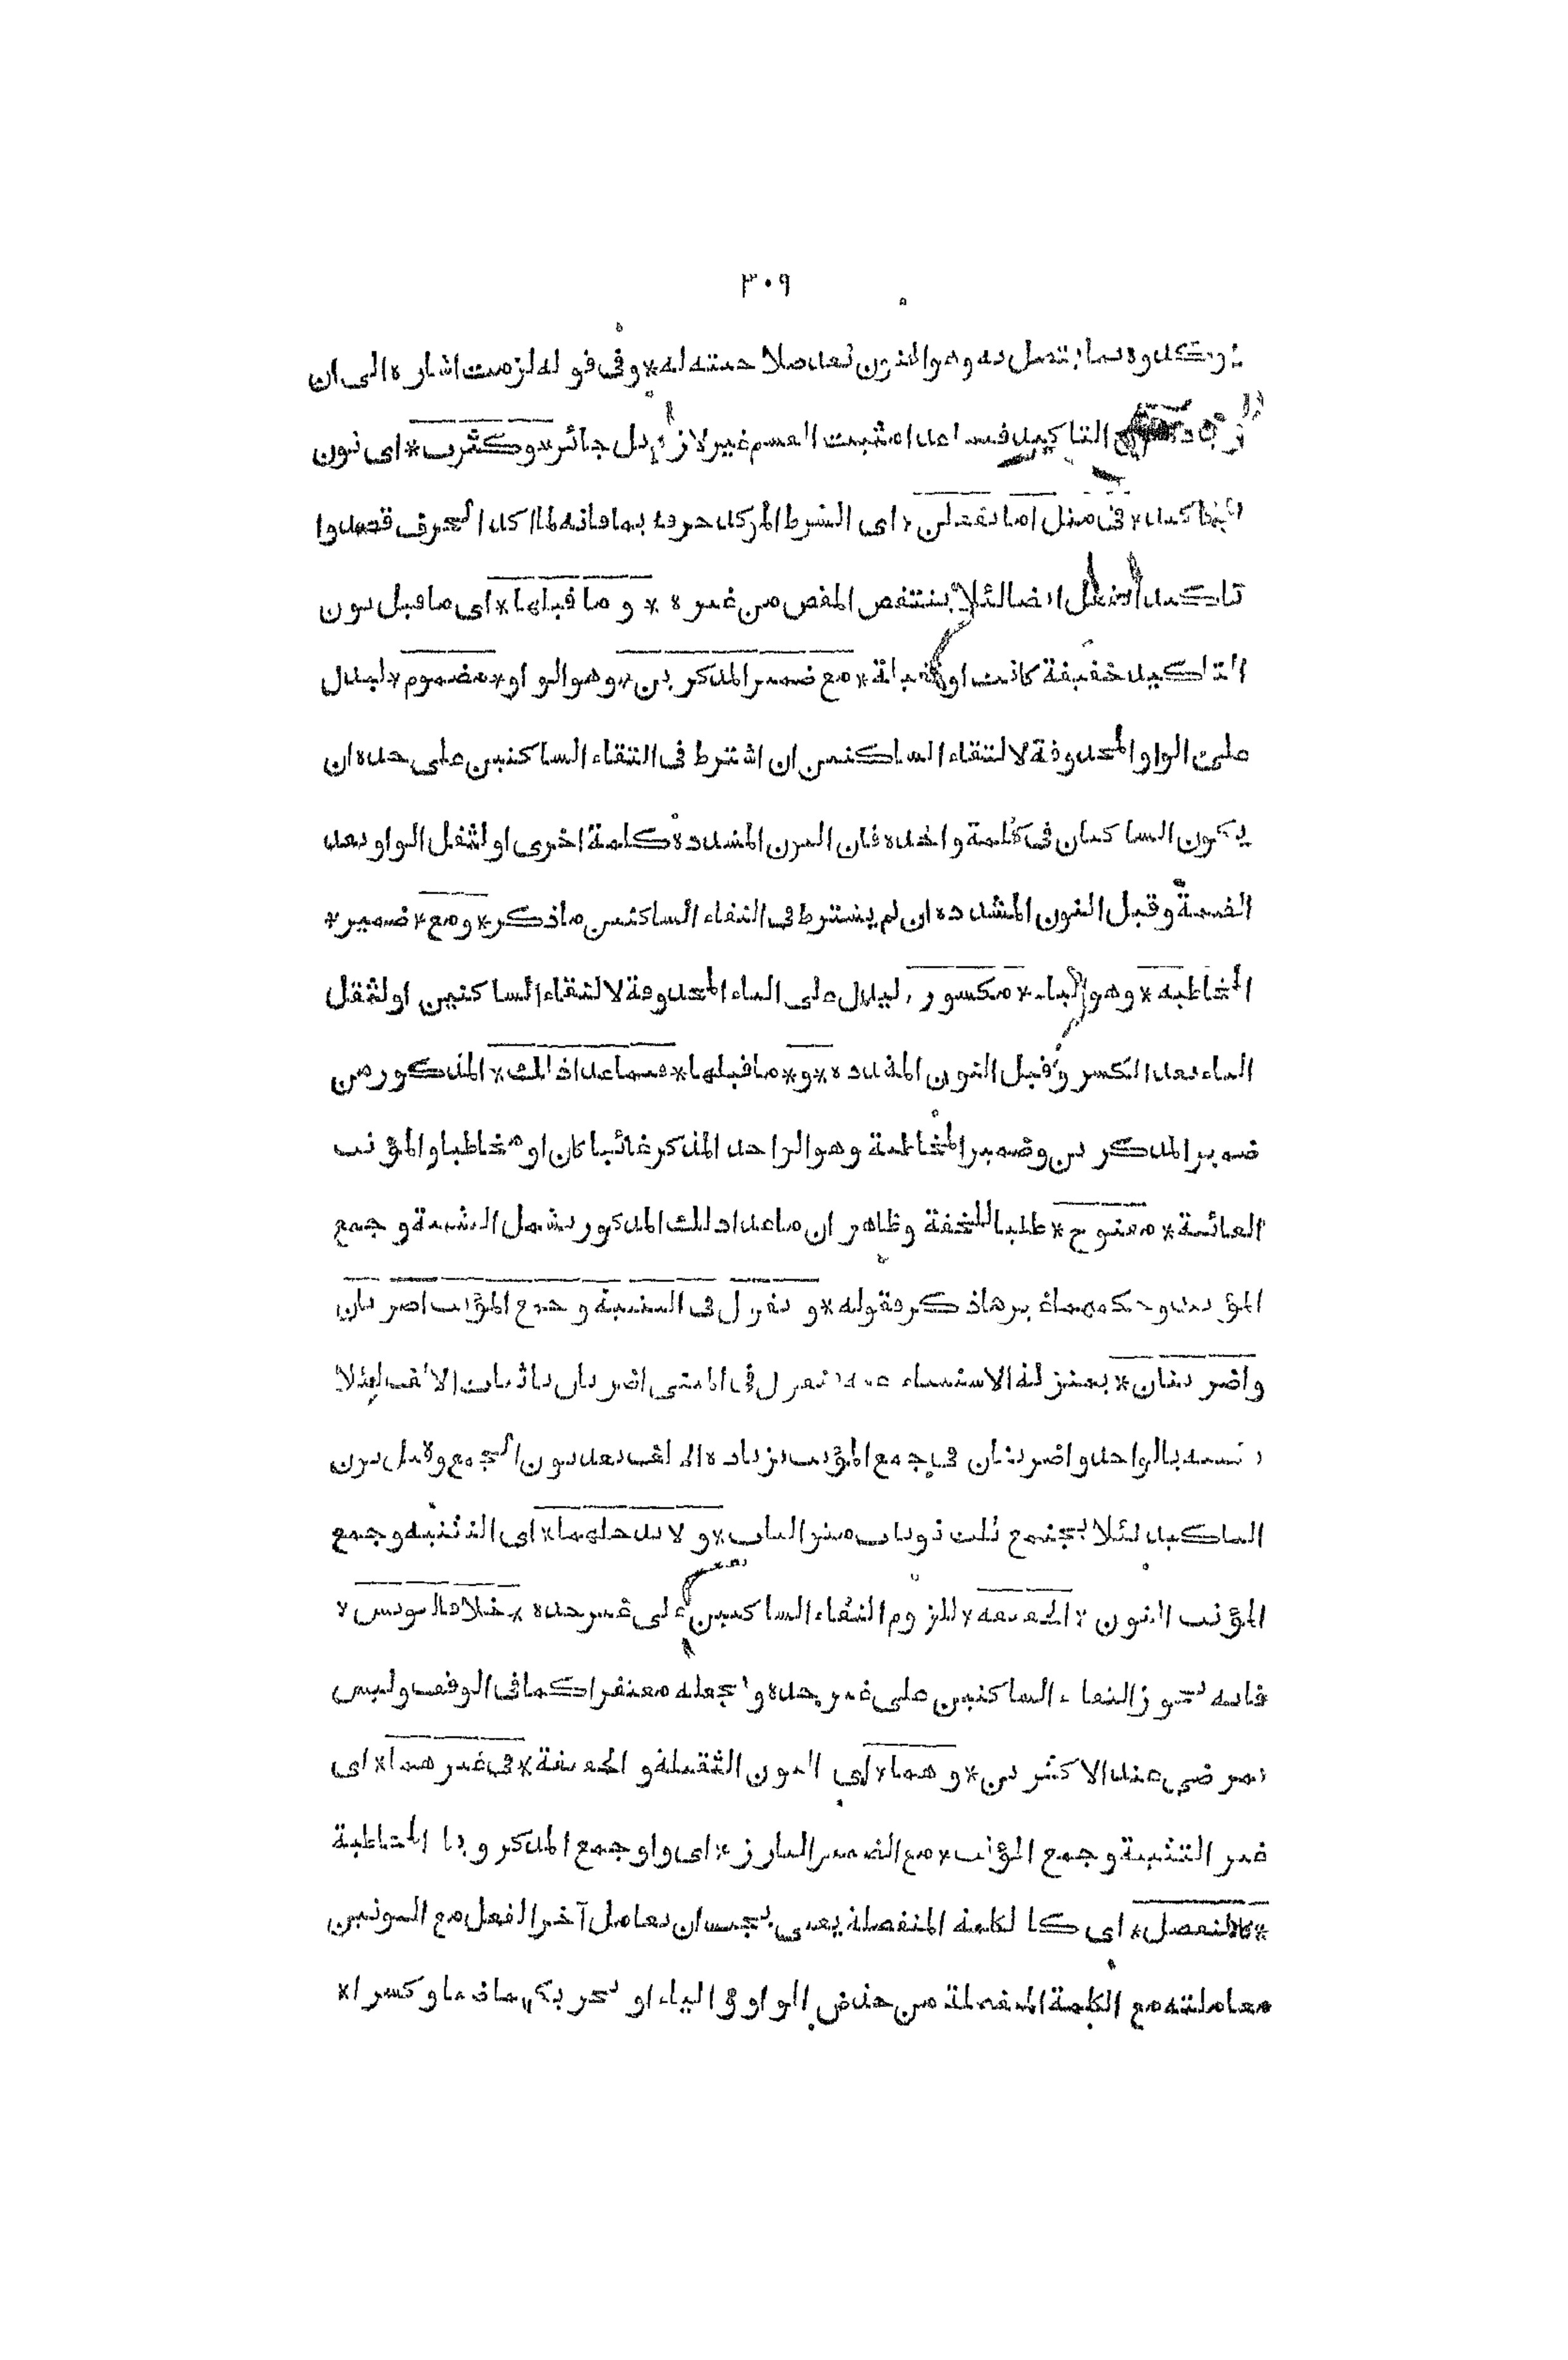 ٣٠٩
ويؤكدوه بما يتصل به وهو النون بعد صلاحيته له * وفي قوله لزمت اشارة الى ان
التاكيد فيما عدا مثبت القسم غير لازم بل جائز * وكثرت * اى نون
التاكيد * فى مثل اما تفعلن * اى الشرط المؤكد حرفه بما فانه لما اكد الحرف قصدوا
تاكيد الفعل ايضا لئلا ينتقص المقص من غيره * وما قبلها * اى ما قبل نون
التاكيد خفيفة كانت او ثقيلة * مع ضمير المذكرين * وهو الواو * مضموم * ليدل
على الواو المحذوفة لالتقاء الساكنين ان اشترط فى التقاء الساكنين على حده ان
يكون الساكنان فى كلمة واحدة فان النون المشددة كلمة اخرى او لثقل الواو بعد
الضمة وقبل النون المشددة ان لم يشترط فى التقاء الساكنين ما ذكر * ومع * ضمير *
المخاطبة * وهو الياء * مكسور * ليدل على الياء المحذوفة لالتقاء الساكنين او لثقل
الياء بعد الكسر وقبل النون المشددة * و * ما قبلها * فيما عدا ذلك * المذكور من
ضمير المذكرين وضمير المخاطبة وهو الواحد المذكر غائبا كان او مخاطبا والمؤنث
الغائبة * مفتوح * طلبا للخفة وظاهر ان ما عدا ذلك المذكور يشمل التثنية وجمع
المؤنث وحكمهما غير ما ذكر فقوله * وتقول فى التثنية وجمع المؤنث اضربان
واضربنان * بمنزلة الاستثناء عنه تقول فى المثنى اضربان باثبات الالف لئلا
يشتبه بالواحد واضربنان فى جمع المؤنث بزيادة الالف بعد نون الجمع وقبل نون
التاكيد لئلا يجتمع ثلث نونات * ولا تدخلهما * اى التثنية وجمع
المؤنث النون * الخفيفة * للزوم التقاء الساكنين على غير حده * خلافا ليونس *
فانه يجوز التقاء الساكنين على غير حده ويجعله مغتفرا كما فى الوقف وليس
بمرضى عند الاكثرين * وهما * اى النون الثقيلة والخفيفة * فى غيرهما * اى
غير التثنية وجمع المؤنث * مع الضمير البارز * اى واو جمع المذكر ويا المخاطبة
* كالمنفصل * اى كالكلمة المنفصلة يعنى يجب ان يعامل آخر الفعل مع النونين
معاملته مع الكلمة المنفصلة من حذف الواو والياء او تحريكهما ضما وكسرا *